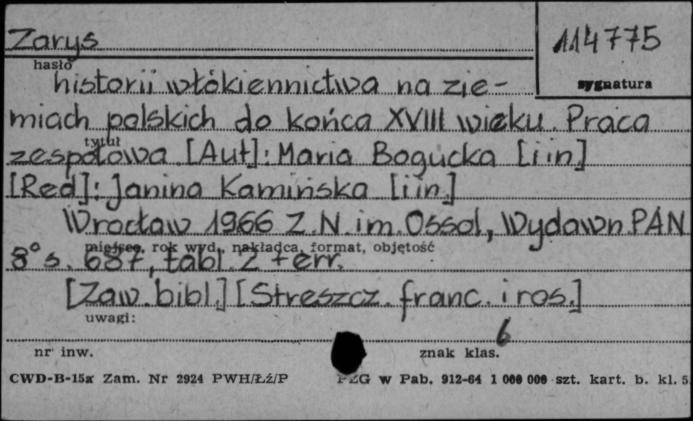 Zarys
114775
hasło
sygnatura
historii włókiennictwa na zie-
miach polskich do końca XVIII wieku. Praca
tytuł
zespołowa [Aut]: Maria Bogucka [i in]
[Red]: Janina Kamińska [i in.]
Wrocław 1966 Z.N. im. Ossol., Wydawn. PAN
miejsce, rok wyd., nakładca, format, objętość
8° s. 687, tabl. 2 + err.
[Zaw. bibl.] [Streszcz. franc. i ros.]
uwagi:
6
nr inw.
znak klas.
CWD-B-15a Zam. Nr 2924 PWH/Łź/P
PZG w Pab. 912-64 1 000 000 szt. kart. b. kl. 5